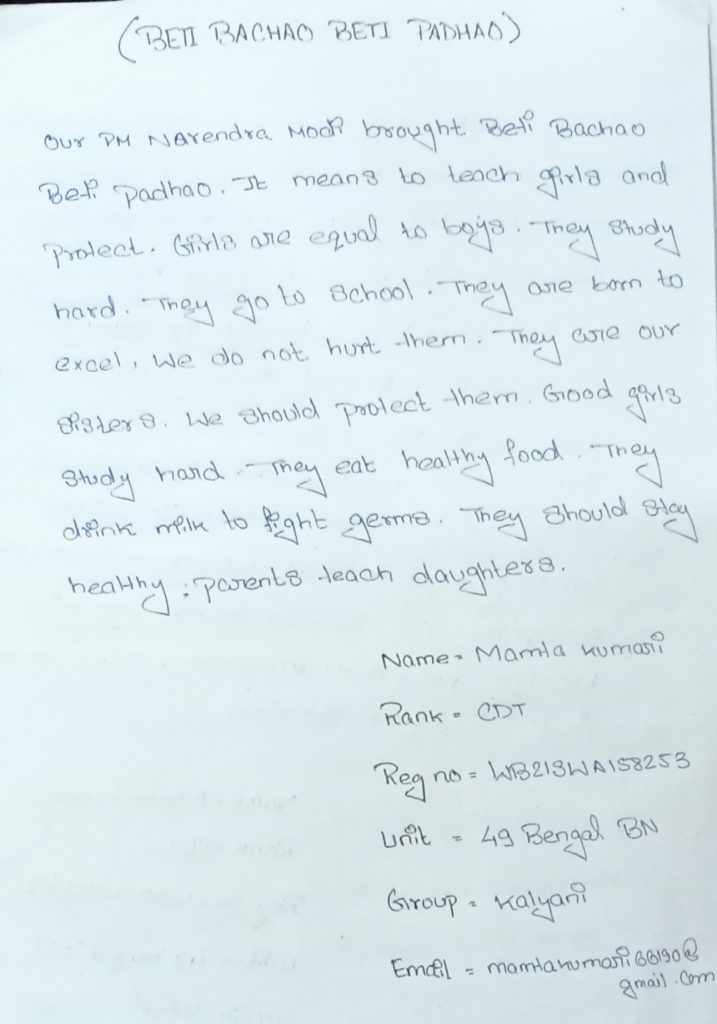 (BETI BACHAO BETI PADHAO)
Our PM Narendra Modi brought Beti Bachao
Beti Padhao. It means to teach girls and
Protect. Girls are equal to boys. They study
hard. They go to school. They are born to
excel, we do not hurt them. They are our
sisters. We should protect them. Good girls
study hard. They eat healthy food. They
drink milk to fight germs. They should stay
healthy; parents teach daughters.
Name- Mamta Kumari
Rank - CDT
Reg no = WB21SWA158253
Unit = 49 Bengal BN
Group = Kalyani
Email = mamtakumari66190@
gmail.com